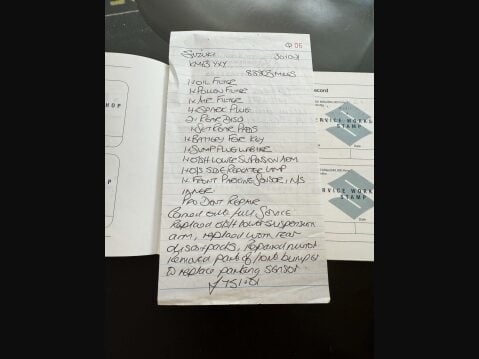 06
SUZUKI
KM63 YXY
88303 MILES
1x OIL FILTER
1x POLLEN FILTER
1x AIR FILTER
4x SPARK PLUG
2x REAR DISC
1x SET REAR PADS
1x BATTERY FOR KEY
1x SUMP PLUG WASHER
1x O/S/H LOWER SUSPENSION ARM
1x O/S SIDE REPEATER LAMP
1x FRONT PARKING SENSOR N/S
INNER
DENT REPAIR
Carried out full service
Replaced o/s/h lower suspension
arm, replaced worn rear
discs + pads,
removed part of front bumper
to replace parking sensor
£751.01
ecord
SERVICE WORKS
STAMP
Date
SERVICE WORKS
STAMP
Date
HOP